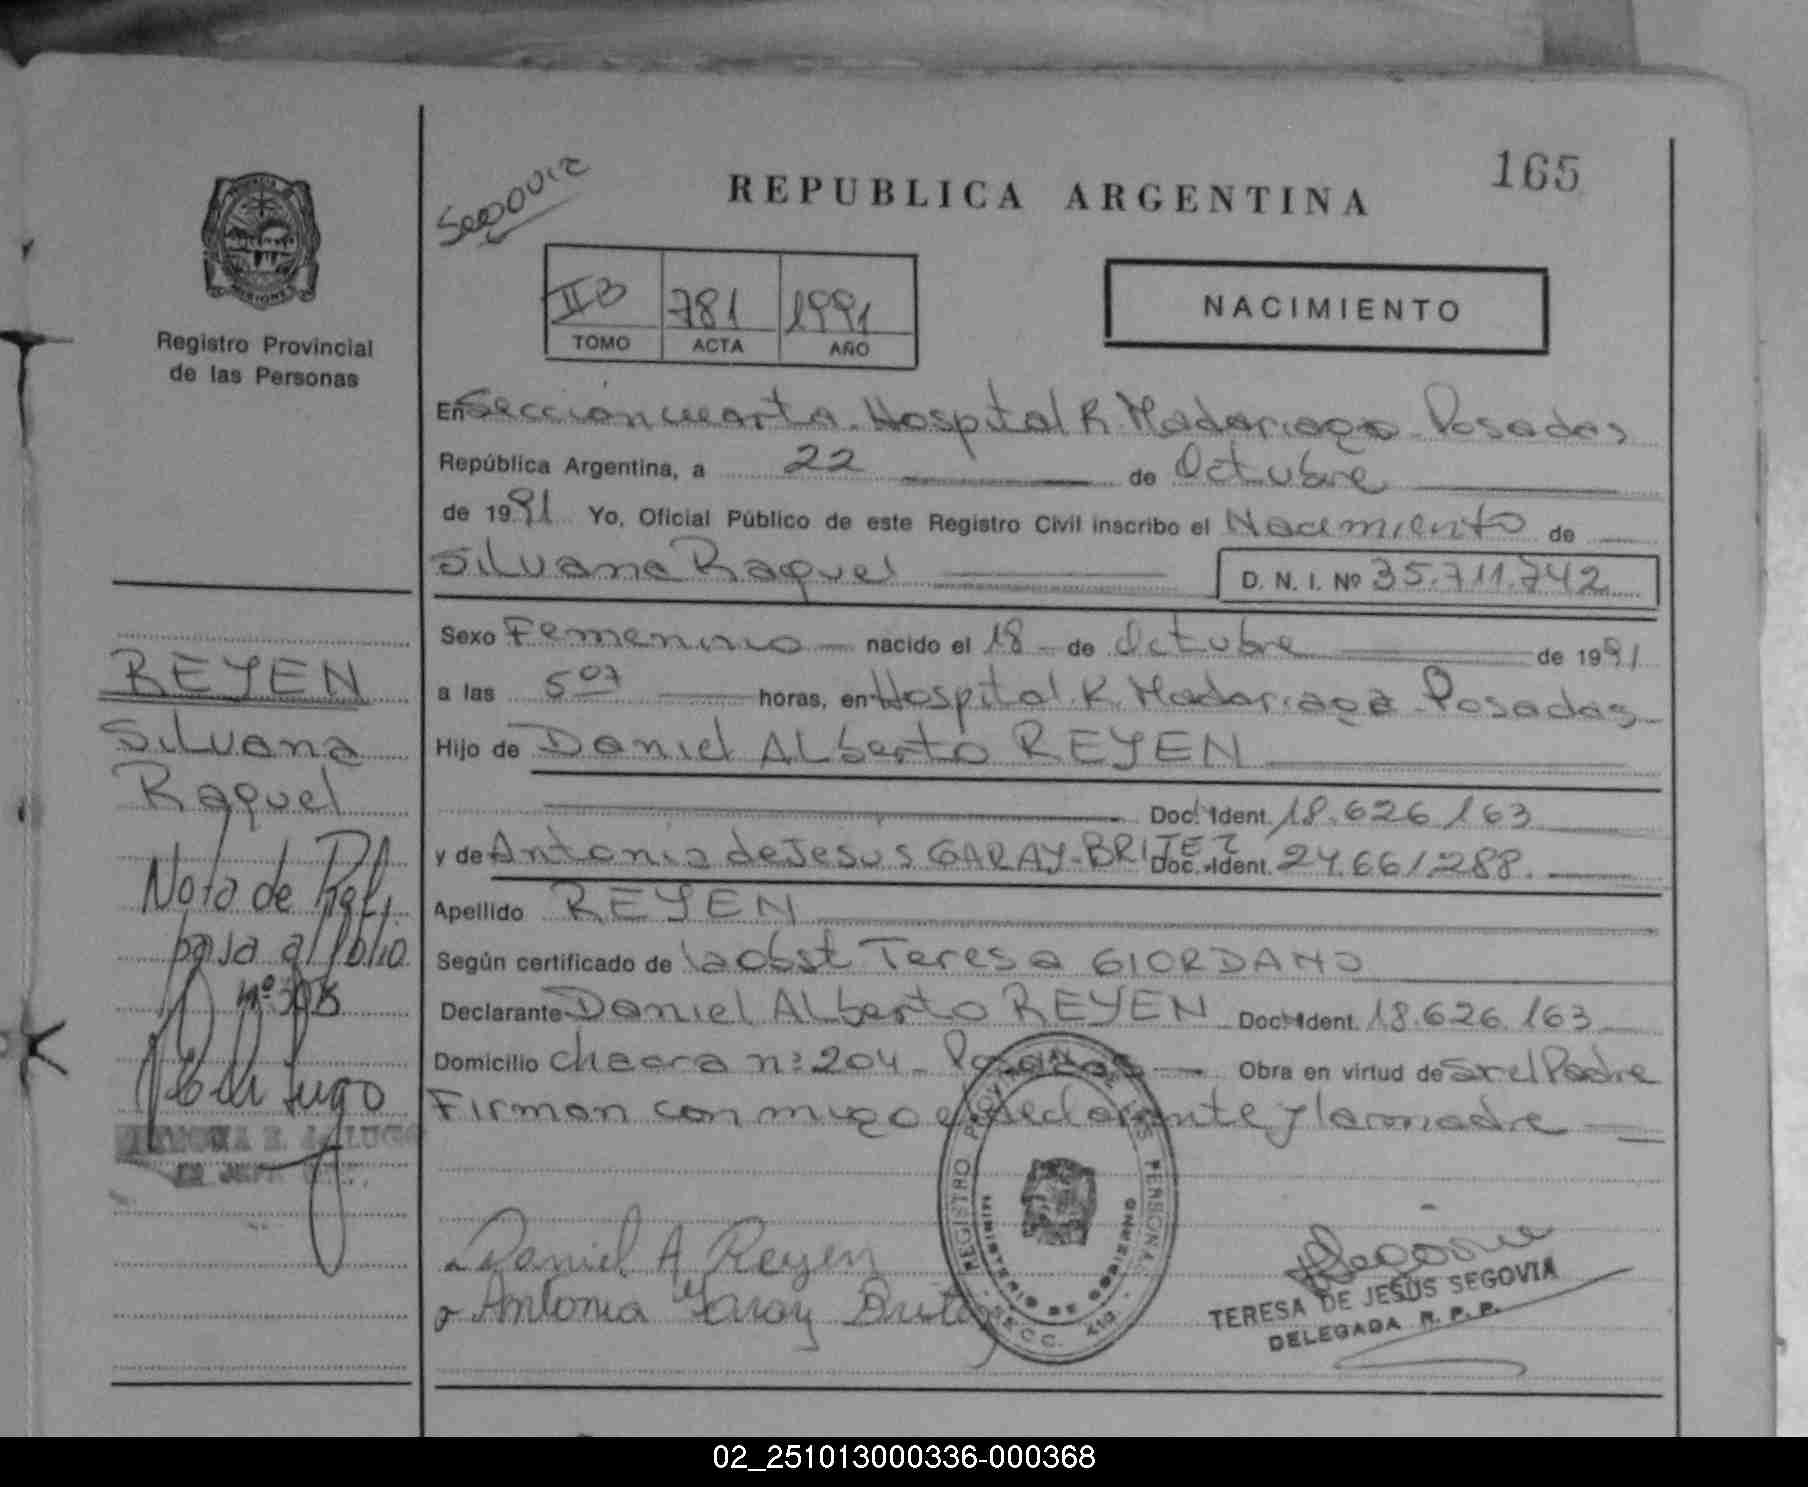 165
Segovia
REPUBLICA ARGENTINA
II B 781 1991
TOMO ACTA AÑO
NACIMIENTO
Registro Provincial
de las Personas
En Sección cuarta. Hospital R. Madariaga Posadas
República Argentina, a 22 de Octubre
de 1991 Yo, Oficial Público de este Registro Civil inscribo el Nacimiento de
Silvana Raquel D. N. I. Nº 35.711.742
Sexo Femenino nacido el 18 de Octubre de 1991
a las 5 07 horas, en Hospital R. Madariaga Posadas
Hijo de Daniel ALberto REYEN
Doc. Ident. 18.626.163
y de Antonia de Jesus GARAY-BRITEZ Doc. Ident. 24.661.288.
Apellido REYEN
Según certificado de la obst Teresa GIORDANO
Declarante Daniel ALberto REYEN Doc. Ident. 18.626.163
Domicilio chacra nº 204 Posadas Obra en virtud de Ser el Padre
Firman conmigo el declarante y la madre
REYEN
Silvana
Raquel
Nota de
pasa al folio
nº
Lugo
Daniel A Reyen
Antonia Garay Britez
REGISTRO PROVINCIAL DE LAS PERSONAS
MINISTERIO DE GOBIERNO
SECC. 4ta.
Segovia
TERESA DE JESUS SEGOVIA
DELEGADA R. P. P.
02_251013000336-000368